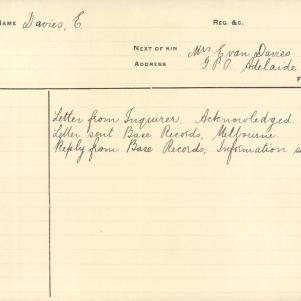 NAME Davies, E. REG. &C.
NEXT OF KIN Mrs Evan Davies
ADDRESS G.P.O. Adelaide
F
Letter from Inquirer. Acknowledged.
Letter sent Base Records, Melbourne.
Reply from Base Records, Information s